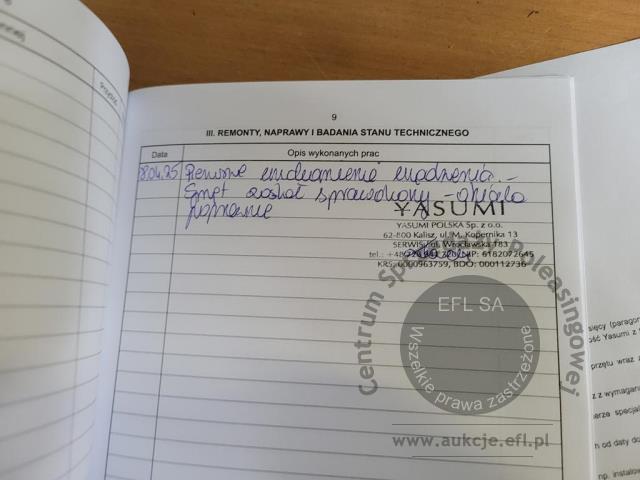 9
III. REMONTY, NAPRAWY I BADANIA STANU TECHNICZNEGO
Data
Opis wykonanych prac
28.04.25 Pierwsze uruchomienie urządzenia. -
Sprzęt został sprawdzony - działa
poprawnie
YASUMI
YASUMI POLSKA Sp. z o.o.
62-800 Kalisz, ul. M. Kopernika 13
SERWIS: ul. Wrocławska 183
NIP: 6182072645
KRS: 0000963759, BDO: 000112736
Centrum Poleasingowej
EFL SA
Wszelkie prawa zastrzeżone
www.aukcje.efl.pl
sięcy (paragon
ość Yasumi z
przętu wraz z
z z wymagar
erze specjal
h od daty do
np. instalow